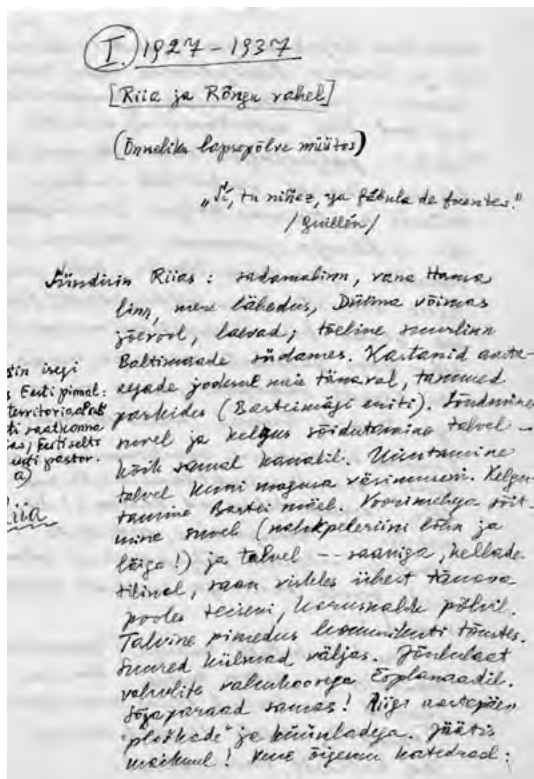 I. 1927–1937
[Riia ja Rõngu vahel]
(Õnneliku lapsepõlve müütos)
„Sí, tu niñez, ya fábula de fuentes."
/Guillén/
Sündisin Riias: sadamalinn, vana Hansa
linn, mere lähedus, Düüna võimas
jõevool, laevad; tõeline suurlinn
Baltimaade südames. Kastanid aasta-
aegade jooksul meie tänaval, tammed
parkides (Basteimägi eriti). Sõudmine
suvel ja kelgus sõidutamine talvel –
kõik samal kanalil. Uisutamine
talvel kuni magusa väsimuseni. Kelgu-
tamine Bastei mäel. Voorimehega sõit-
mine suvel (nahkpeleriini lõhn ja
läige!) ja talvel -- saaniga, kellade
tilinal, saan viskles ühest tänava
poolest teiseni, karusnahk põlvil.
Talvine pimedus hommikuti tõustes.
Suured külmad väljas. Jõululaat
vahvlite vahukoorega Esplanaadil.
Sõjaparaad samas! Riigi aastapäev
"ploškade" ja küünladega. Jäätis
maikuul! Vene õigeusu katedraal:
sin isegi
s Eesti pinnal:
territoriaalselt
ti saatkonna
as, Eesti selts
eesti pastor.
a)
Riia